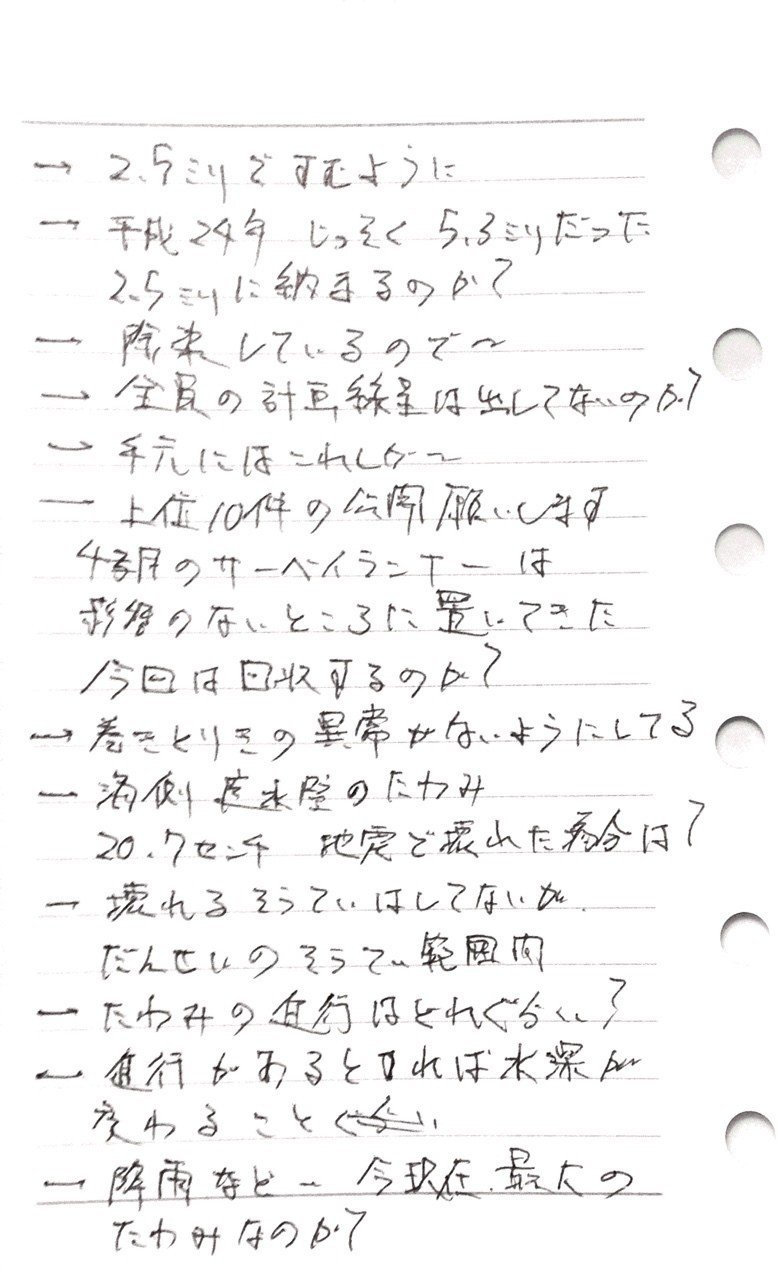 → 2.5ミリですむように
→ 平成24年 じっそく 5.3ミリだった
2.5ミリに納まるのか?
→ 除染しているので〜
→ 全員の計画線量は出してないのか?
→ 手元にはこれしか〜
― 上位10件の公開願いします
4号月のサーベイランナーは
影響のないところに置いてきた
今回は回収するのか?
→ 巻きとりきの異常がないようにしてる
― 海側遮水壁のたわみ
20.7センチ 地震で壊れた部分は?
― 壊れるそうていはしてないが
だんせいのそうてい範囲内
― たわみの進行はどれぐらい?
― 進行があるとすれば水深が
変わることぐらい
― 降雨など〜 今現在 最大の
たわみなのか?